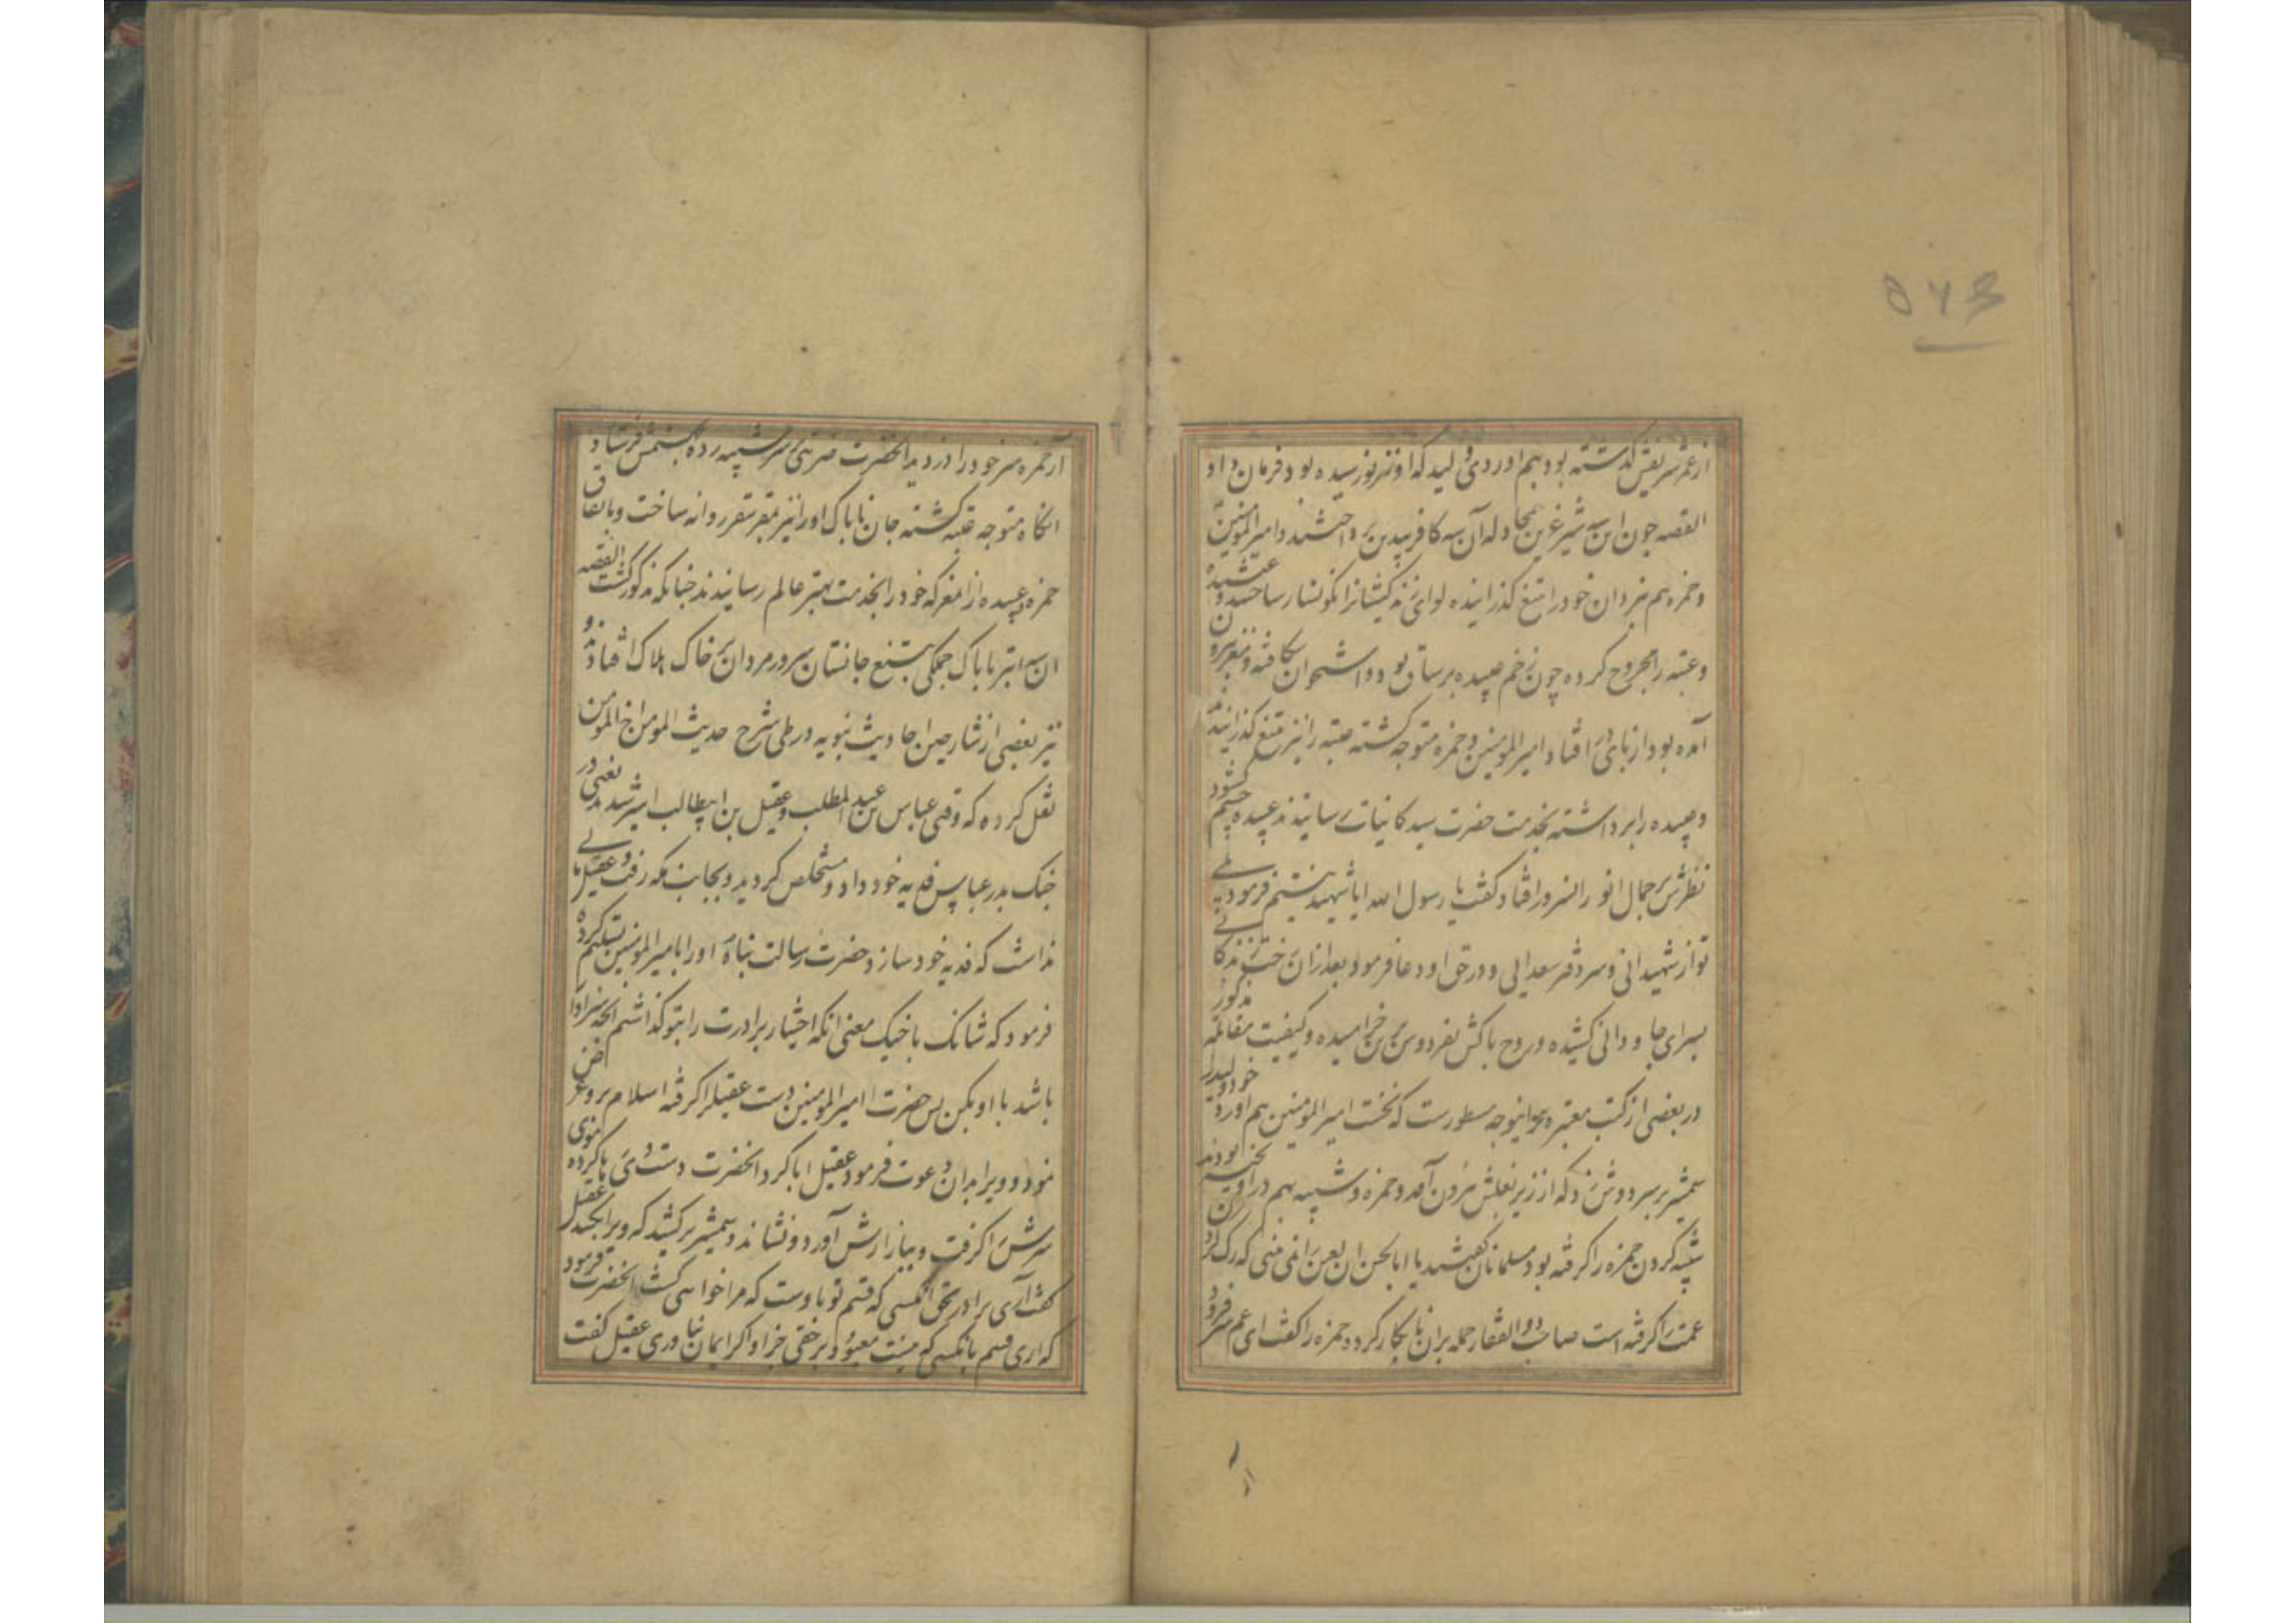 ۵۷۴
از عمر شریفش گذشته بود بهم اوردی ولید که او نیز نورسیده بود فرمان داد
القصه چون این سه شیر غرین بمجادله آن سه کافر بیدین پرداختند و امیرالمومنین
و حمزه هم نبردان خود را بتیغ گذرانیده لوای زندگیشانرا نگونسار ساختند و عبیده
و عتبه را مجروح کرده چون زخم عبیده بر ساق بود و استخوان شکافته و مغز بیرون
آمده بود از پای در افتاد امیرالمومنین و حمزه متوجه گشته عتبه را نیز بتیغ گذرانیدند
و عبیده را برداشته بخدمت حضرت سید کاینات رسانیدند عبیده چشم کشود
نظرش بر جمال انور انسرور افتاد و گفت یا رسول الله ایا شهید نیستم فرمود بلی
تو از شهیدانی و سر دفتر سعدایی و در حق او دعا فرمود بعد ازان رخت زندگانی
بسرای جاودانی کشیده و روح پاکش بفردوس برین خرامیده و کیفیت مقاتله مذکور
در بعضی از کتب معتبره براینوجه مسطورست که نخست امیرالمومنین هم اورد خود ولید را
شمشیر بر سر دوش زد که از زیر بغلش بیرون آمد و حمزه و شیبه بهم در اویخته بودند
شیبه گردن حمزه را گرفته بود مسلمانان گفتند یا ابا الحسن ان لعین را نمی بینی که رک گردن
عمت را گرفته است صاحب ذوالفقار حمله بران نابکار کرد و حمزه را گفت ای عم سر فرود
ار
آر حمزه سر خود را دزدید انحضرت ضربتی بر سر شیبه زده بجهنمش فرستاد
انگاه متوجه عتبه گشته جان ناپاک او را نیز بمقر سقر روانه ساخت و باتفاق
حمزه عبیده را از معرکه خود را بخدمت مهتر عالم رسانیدند چنانکه مذکور گشت القصه
ان سه ابتر ناپاک جملگی بتیغ جانستان سرور مردان بر خاک هلاک افتادند و
نیز بعضی از شارحین احادیث نبویه در طی شرح حدیث المومن اخ المومن
نقل کرده که وقتی عباس بن عبد المطلب و عقیل بن ابیطالب اسیر شدند یعنی در
جنک بدر عباس فدیه خود داد و مستخلص گردید و بجانب مکه رفت و عقیل مالی
نداشت که فدیه خود سازد حضرت رسالت پناه او را بامیرالمومنین تسلیم کرده
فرمود که شانک باخیک معنی انکه اختیار برادرت را بتو گذاشتم انچه سزاوار
باشد با او بکن پس حضرت امیرالمومنین دست عقیل را گرفته اسلام برو عرض
نمود و ویرا بدان دعوت فرمود عقیل ابا کرد انحضرت دست وی را
سرش را گرفت و ببازارش آورد و نشاند و شمشیر برکشید که ویرا بکشد عقیل
گفت آری برادر بحق آنکسی که قسم تو باوست که مرا خواهی کشت انحضرت فرمود
که اری قسم بانکسی که نیست معبود بر حقی جز او اگر ایمان نیاوری عقیل گفت